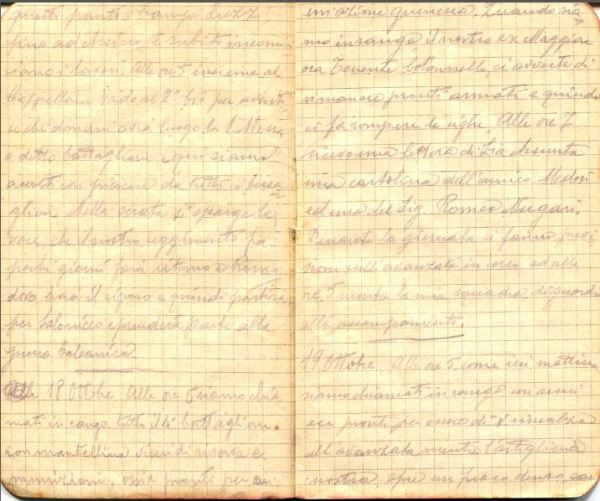 questi punti a Campo Luzzi
fino ad
ciamo i lavori. Alle ore 5 insieme al
Cappellano vado al 2° bis per avverti
re che domani avrà luogo la S. Messa
a detto battaglione e qui siamo
accolti con piacere da tutti i bersa
glieri. Nella serata si sparge la
voce, che il nostro reggimento fra
pochi giorni farà ritorno a
dove avrà il riposo e quindi partirà
per Salonicco e prenderà parte alla
guerra balcanica.
18 Ottobre. Alle ore 5 siamo chia
mati in rango tutti il 4° battaglione.
con mantellina viveri di riserva e
munizioni, ossia pronti per
un'azione guerresca. Quando sia
mo in rango il nostro ex Maggiore
ora Tenente Colonnello, ci avverte di
rimanere pronti armati e quindi
ci fa rompere le righe. Alle ore 7
ricevo una lettera di Zia Assunta
una cartolina dell'amico
ed una del Sig. Romeo
Durante la giornata si fanno previ
sioni sull'avanzata in corso ed alle
ore 5 monta la mia squadra, di guardia
all'accampamento.
19 Ottobre. Alle ore 5 come ieri mattina
siamo chiamati in rango con armi
ecc pronti per esser di rincalzo
all'avanzata mentre l'artiglieria
nostra apre un fuoco denso, con